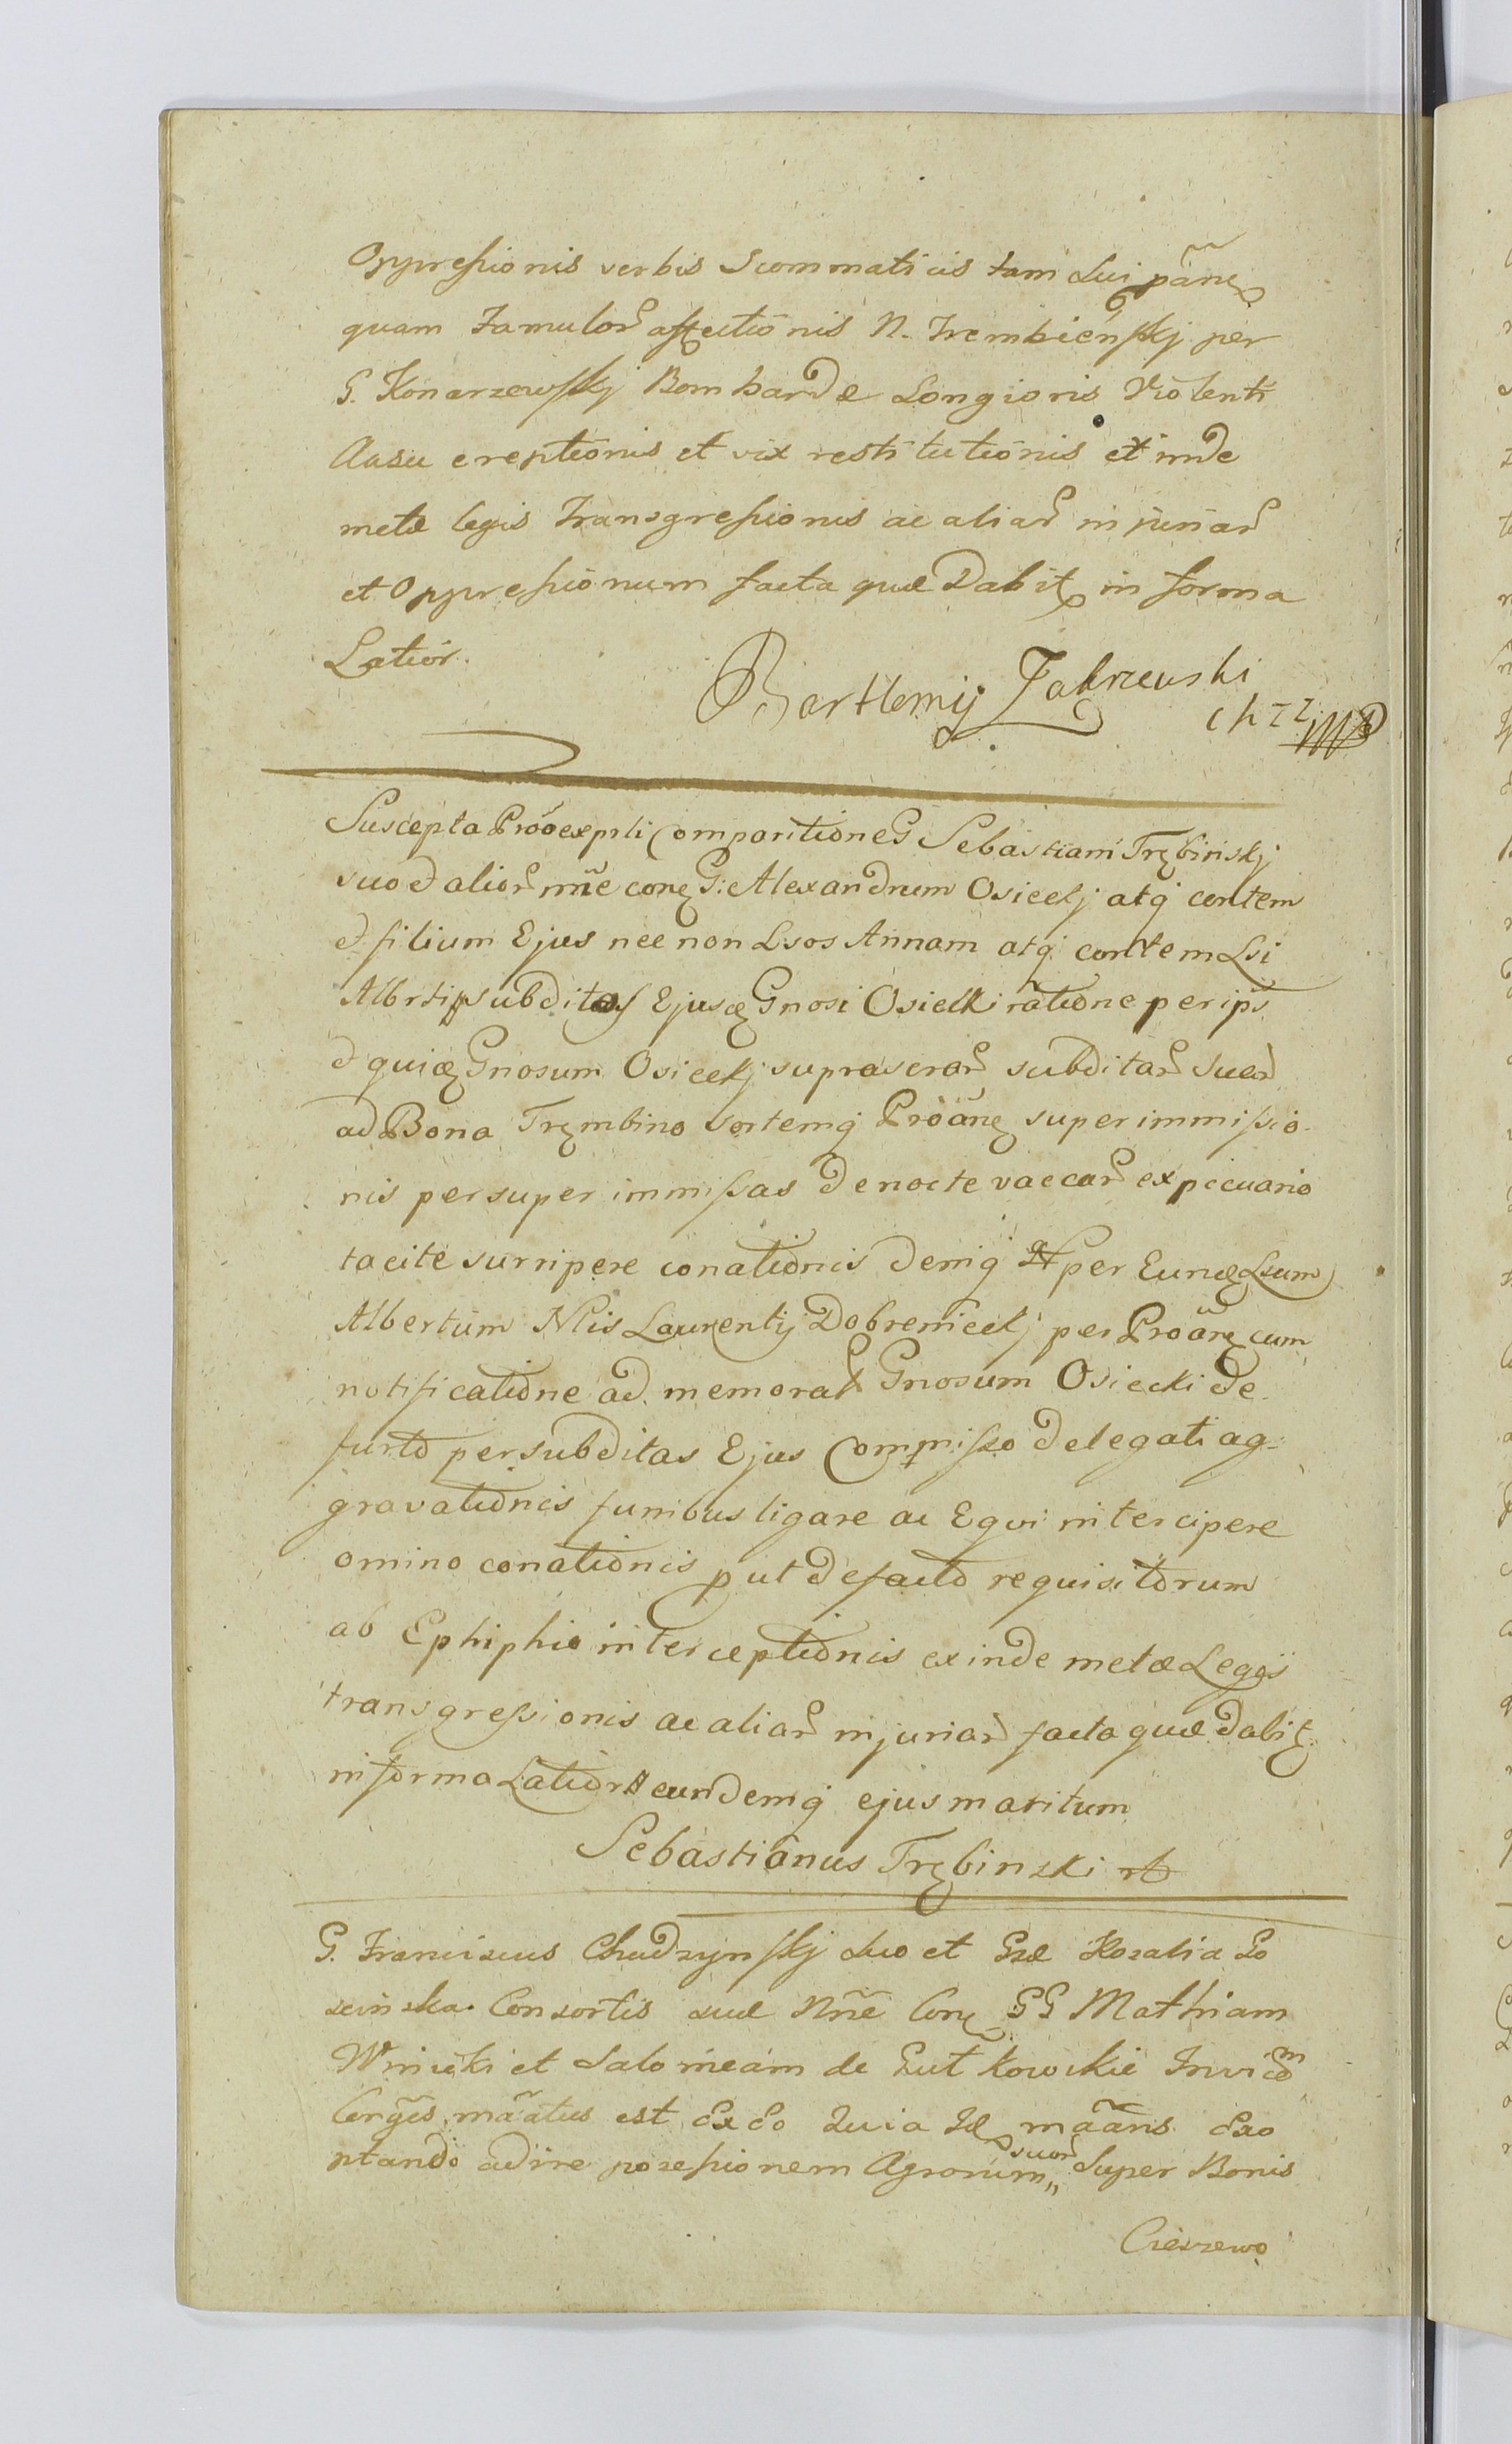 Oppressionis verbis Scommaticis tam Sui pãne
quam Famulor affectionis N. Trembienskj per
G. Konarzewskj Bombardæ Longioris Violenti
Ausu ereptionis et vix restitutionis et inde
metæ legis Transgressionis ac aliar injuriar
et Oppressionum facta quæ Dabit in forma
Latior.
Bartlemij Zakrzewski
Suscepta Próoexprli Comparitione G Sebastiani Trębinskj
suo & alior nñe cone G: Alexandrum Osieckj atq contem
& filium Ejus nec non Lsos Annam atq contem Lsi
Alberti subditas Ejusq Gnosi Osiecki ratione per ips
& quiq Gnosum Osieckj suprascrar subditar suar
ad Bona Trembino sortemq Pròãne superimmissio-
nis per super immissas de nocte vaccar ex pecuario
tacite surripere conationis deniq per Eunq Lsum
Albertum Nlis Laurentij Dobrenieckj per Proãne cum
notificatione ad memorat Gnosum Osiecki de
furto per subditas Ejus Commisso delegati ag-
gravationis funibus ligare ac Eqvi intercipere
omino conationis put de facto requisitorum
ab Ephiphio interceptionis exinde metæ Legis
transgressionis ac aliar injuriar facta quæ dabit
in forma Latior eundemq ejus maritum
Sebastianus Trębinski
G. Franciscus Chudzynskj Suo et Gsæ Rozalia Lo
scinska Consortis suæ Nñe Cone GG Mathiam
Winicki et Salomeam de Gutkowskie Invicem
Cerges mãatus est Ex Eo Quia Id mãans Exo
ptando adire posessionem Agrorum,, suor Super Bonis
Cieszewo